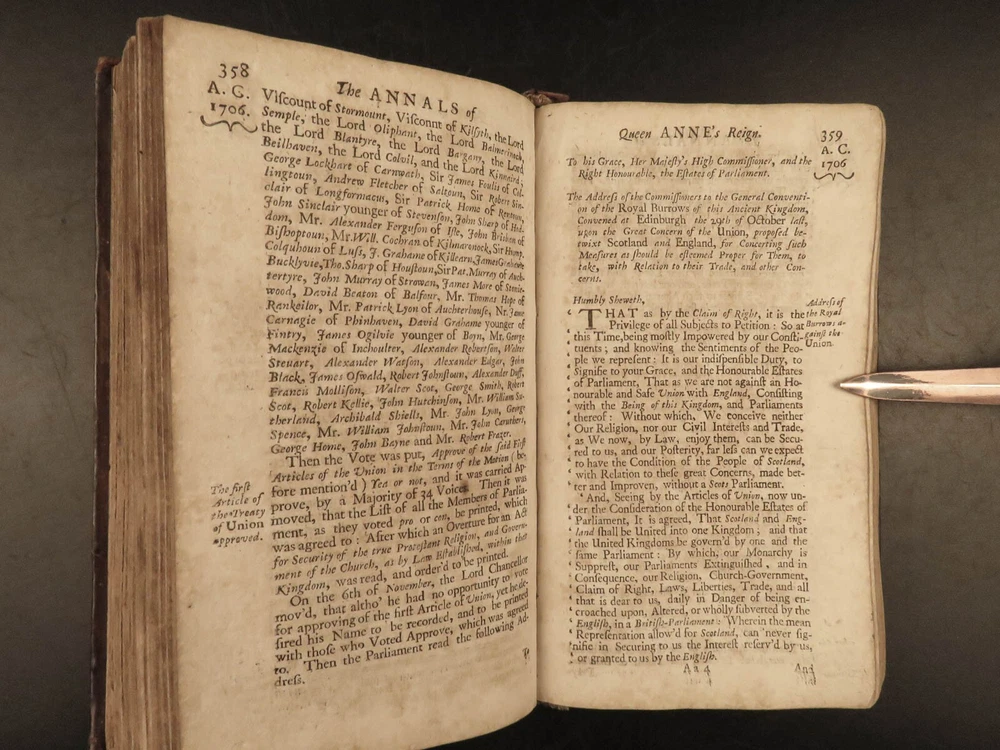 358
The ANNALS of
A. C.
1706.
Viſcount of Stormount, Viſconnt of Kilſyth, the Lord
Semple, the Lord Oliphant, the Lord Balmerinock,
the Lord Blantyre, the Lord Bargany, the Lord
Beilhaven, the Lord Colvil, and the Lord Kinnaird;
George Lockhart of Carnwath, Sir James Foulis of Col-
lingtoun, Andrew Fletcher of Saltoun, Sir Robert Sin-
clair of Longformacus, Sir Patrick Home of Rentoun,
John Sinclair younger of Stevenſon, John Sharp of Hod-
dom, Mr. Alexander Ferguſon of Iſle, John Brisbon of
Biſhoptoun, Mr. Will. Cochran of Kilmaronock, Sir Hump.
Colquhoun of Luſs, J. Grahame of Killearn, James Grahame
Bucklyvie, Tho. Sharp of Houſtoun, Sir Pat. Murray of Auch-
tertyre, John Murray of Strowan, James More of Stonie-
wood, David Beaton of Balfour, Mr. Thomas Hope of
Rankeilor, Mr. Patrick Lyon of Auchterhouſe, Nr. Jame
Carnagie of Phinhaven, David Grahame younger of
Fintry, James Ogilvie younger of Boyn, Mr. George
Mackenzie of Inchoulter, Alexander Robertſon, Walter
Steuart, Alexander Watſon, Alexander Edgar, John
Black, James Oſwald, Robert Johnſtoun, Alexander Duff,
Francis Molliſon, Walter Scot, George Smith, Robert
Scot, Robert Kellie, John Hutchinſon, Mr. William Su-
therland, Archibald Shiells, Mr. John Lyon, George
Spence, Mr. William Johnſtoun, Mr. John Caruthers,
George Home, John Bayne and Mr. Robert Frazer.
Then the Vote was put, Approve of the ſaid Firſt
Articles of the Union in the Terms of the Motion (be-
fore mention'd) Yea or not, and it was carried Ap-
prove, by a Majority of 34 Voices. Then it was
moved, that the Liſt of all the Members of Parlia-
ment, as they voted pro or con, be printed, which
was agreed to: After which an Overture for an Act
for Security of the true Proteſtant Religion, and Govern-
ment of the Church, as by Law Eſtabliſhed, within that
Kingdom, was read, and order'd to be printed.
The firſt
Article of
the Treaty
of Union
approved.
On the 6th of November, the Lord Chancellor
mov'd, that altho' he had no opportunity to vote
for approving of the firſt Article of Union, yet he de-
ſired his Name to be recorded, and to be printed
with thoſe who Voted Approve, which was agreed
to. Then the Parliament read the following Ad-
dreſs.
Queen ANNE's Reign.
359
A. C.
1706
To his Grace, Her Majeſty's High Commiſſioner, and the
Right Honourable, the Eſtates of Parliament.
The Addreſs of the Commiſſioners to the General Conventi-
on of the Royal Burrows of this Ancient Kingdom,
Convened at Edinburgh the 29th of October laſt,
upon the Great Concern of the Union, propoſed be-
twixt Scotland and England, for Concerting ſuch
Meaſures as ſhould be eſteemed Proper for Them, to
take, with Relation to their Trade, and other Con-
cerns.
Humbly Sheweth,
‘ THAT as by the Claim of Right, it is the
‘ Privilege of all Subjects to Petition: So at
‘ this Time, being moſtly Impowered by our Conſti-
‘ tuents; and knowing the Sentiments of the Peo-
‘ ple we repreſent: It is our indiſpenſible Duty, to
‘ Signifie to your Grace, and the Honourable Eſtates
‘ of Parliament, That as we are not againſt an Ho-
‘ nourable and Safe Union with England, Conſiſting
‘ with the Being of this Kingdom, and Parliaments
‘ thereof: Without which, We conceive neither
‘ Our Religion, nor our Civil Intereſts and Trade,
‘ as We now, by Law, enjoy them, can be Secu-
‘ red to us, and our Poſterity, far leſs can we expect
‘ to have the Condition of the People of Scotland,
‘ with Relation to theſe great Concerns, made bet-
‘ ter and Improven, without a Scots Parliament.
Addreſs of
the Royal
Burrows a-
gainſt the
Union.
‘ And, Seeing by the Articles of Union, now un-
‘ der the Conſideration of the Honourable Eſtates of
‘ Parliament, It is agreed, That Scotland and Eng-
‘ land ſhall be United into one Kingdom, and that
‘ the United Kingdoms be govern'd by one and the
‘ ſame Parliament: By which, our Monarchy is
‘ Suppreſt, our Parliaments Extinguiſhed, and in
‘ Conſequence, our Religion, Church-Government,
‘ Claim of Right, Laws, Liberties, Trade, and all
‘ that is dear to us, daily in Danger of being en-
‘ croached upon, Altered, or wholly ſubverted by the
‘ Engliſh, in a Britiſh-Parliament: Wherein the mean
‘ Repreſentation allow'd for Scotland, can never ſig-
‘ nifie in Securing to us the Intereſt reſerv'd by us,
‘ or granted to us by the Engliſh.
A a 4
And